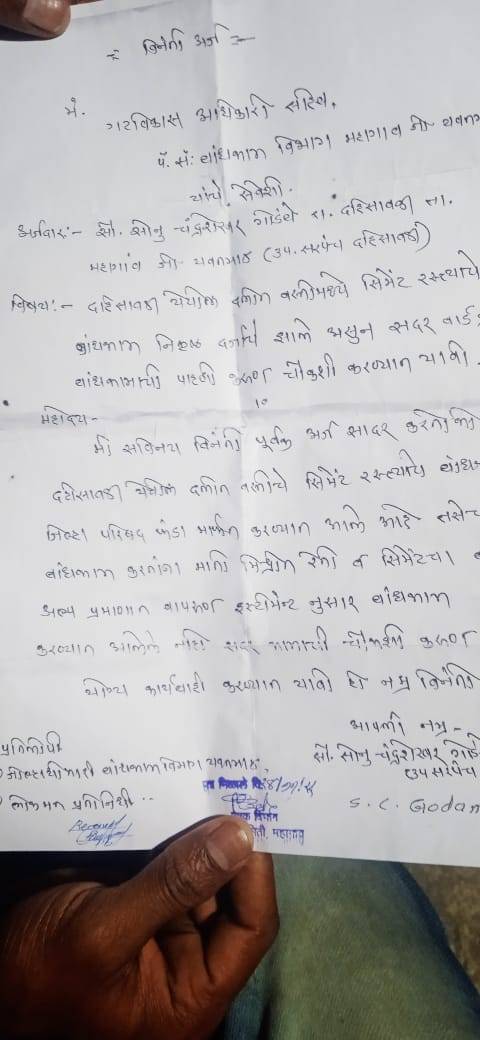 :- विनंती अर्ज :-
मं.
गटविकास अधिकारी साहेब,
पं. सं. बांधकाम विभाग महागाव जी यवतमा
यांचे सेवेशी.
अर्जदार:- सौ. सोनु चंद्रशेखर गोडंबे रा. दहिसावळी ता.
महागांव जी. यवतमाळ (उप. सरपंच दहिसावळी)
विषय:- दहिसावळी येथील दलीत वस्तीमध्ये सिमेंट रस्त्याचे
बांधकाम निकृष्ठ दर्जाचे झाले असुन सदर
बांधकामाची पाहणी करुण चौकशी करण्यात यावी.
महोदय-
मी सविनय विनंती पूर्वक अर्ज सादर करतो की
दहीसावळी येथील दलीत वस्तीचे सिमेंट रस्त्याचे बांध
जिल्हा परिषद फंडा मार्फत करण्यात आले आहे तसेच
बांधकाम करतांना माती मिश्रीत रेती व सिमेंटचा
अल्प प्रमाणात वापरुण इस्टीमेन्ट नुसार बांधकाम
करण्यात आलेले नाही सदर कामाची चौकशी करुण
योग्य कार्यवाही करण्यात यावी ही नम्र विनंती
आपली नम्र -
प्रतिलीपी
सौ. सोनु चंद्रशेखर गोडं
बांधकाम विभाग यवतमाळ,
उपसरपंच
लोकमत प्रतिनिधी ..
S. C. Godam
महागाव